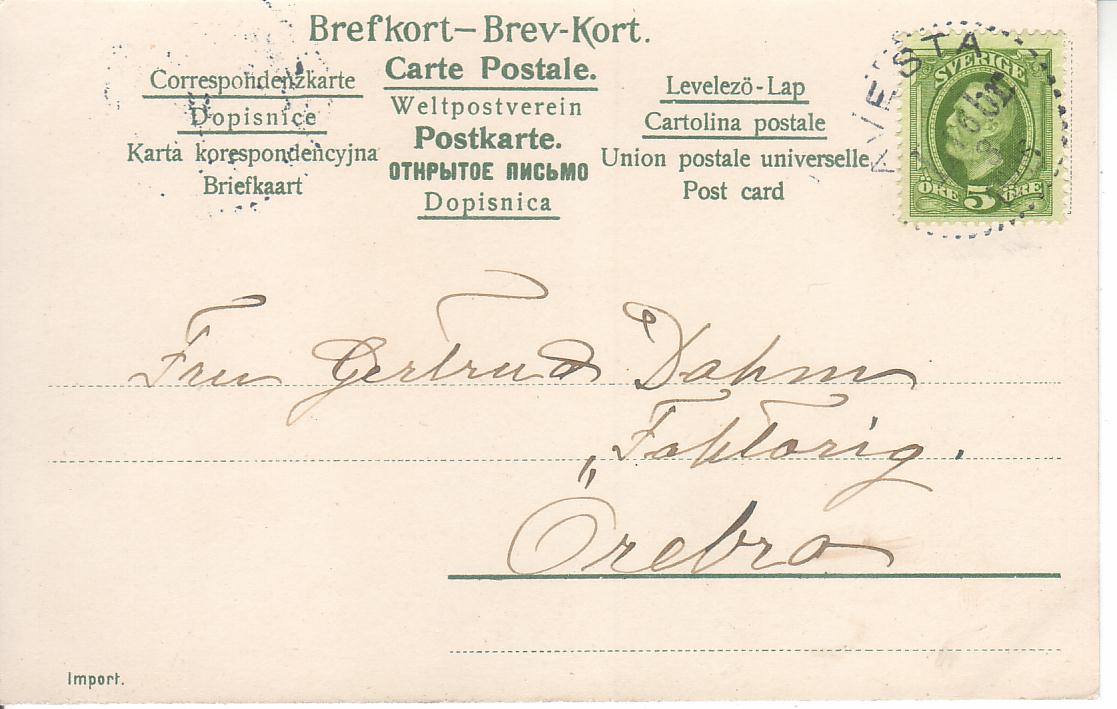 Brefkort – Brev-Kort.
Carte Postale.
Correspondenzkarte
Dopisnice
Karta korespondencyjna
Briefkaart
Weltpostverein
Postkarte.
ОТКРЫТОЕ ПИСЬМО
Dopisnica
Levelezö-Lap
Cartolina postale
Union postale universelle
Post card
AVESTA
SVERIGE
ÖRE 5 ÖRE
Fru Gertrud Dahm
Faktorig.
Örebro
Import.